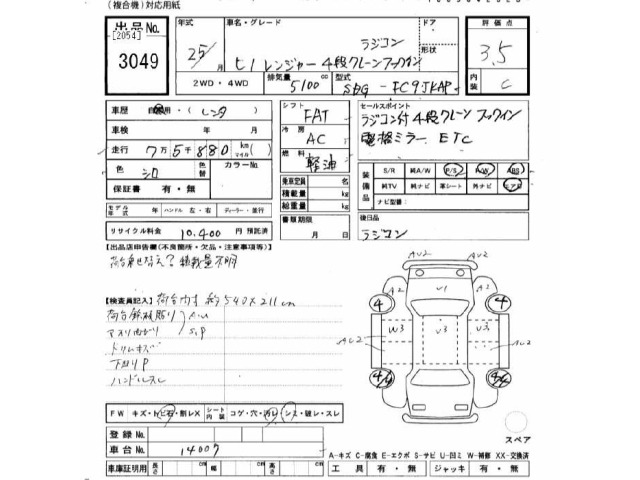 (複合機)対応用紙
出品No.
[2054]
3049
年式
25/
月
車名・グレード
ラジコン
ヒノレンジャー4段クレーンフックイン
ドア
形状
評価点
3.5
内装
C
2WD・4WD
排気量
5100
cc
型式
SDG-FC9JKAP
車歴
自家用・(レンタ)
車検
年
月
走行
7万5千880
km
(マイル)
色
シロ
色替
カラーNo.
保証書
有・無
シフト
FAT
冷房
AC
燃料
軽油
乗車定員
名
積載量
kg
総重量
kg
セールスポイント
ラジコン付4段クレーンフックイン
電格ミラー ETC
装備品
S/R
純A/W
P/S
P/W
ABS
純TV
純ナビ
革シート
外ナビ
エアB
ナビ型番:
モデル年式
年
ハンドル
左・右
ディーラー・並行
書類期限
月
日
後日品
ラジコン
リサイクル料金
10,400
円
預託済
【出品店申告書(不良箇所・欠品・注意事項等)】
荷台乗せ替え?積載量不明
【検査員記入】荷台内寸 約540×211cm
荷台鉄板貼り
AU
S,P
ドリムキズ
下廻りP
ハンドルスレ
AU2
AU2
A2
A2
U1
4
4
W3
U3
U3
AU2
AU2
4/4
4/4
FW
キズ・トビ石・割レX
シート内装
コゲ・穴・汚レ・シミ・破レ・スレ
スペア
登録No.
車台No.
14007
A-キズ C-腐食 E-エクボ S-サビ U-凹ミ W-補修 XX-交換済
車庫証明用
長さ
cm
幅
cm
高さ
cm
工具
有・無
ジャッキ
有・無